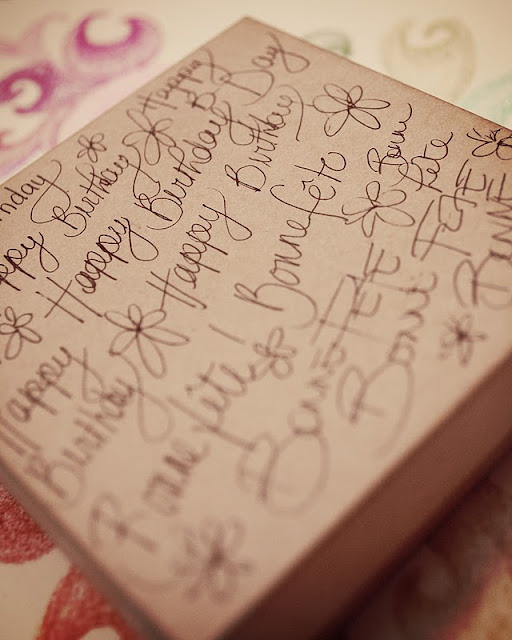 hday
Happy
ppy Birthday
B-Day
Happy Birthday
Happy Birthday
Happy
Birthday
Bonne fête
Bonne fête!
Bonne
fête
BONNE FÊTE
BONNE FÊTE
BONNE